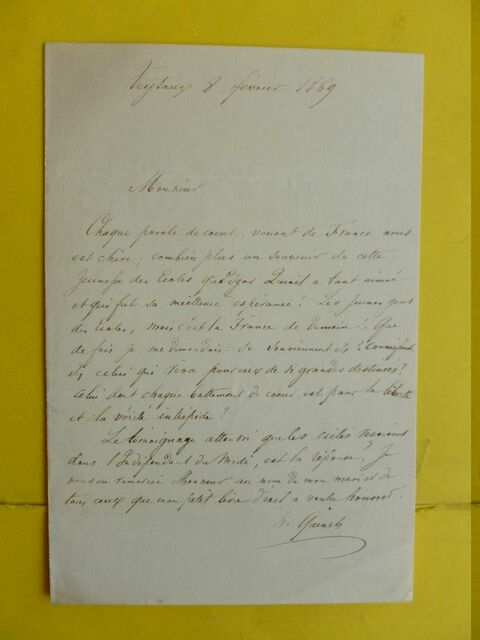 Veytaux 8 février 1869
Monsieur
Chaque parole de coeur, venant de France nous
est chère; combien plus un souvenir de cette
jeunesse des Ecoles qu'Edgar Quinet a tant aimée
et qui fut sa meilleure espérance! Les jeunes gens
des Ecoles, mais c'est la France de demain! Que
de fois je me demandais: se souviennent-ils?
ils, celui qui rêva pour eux de si grandes destinées?
celui dont chaque battement de coeur est pour la liberté
et la vérité intrépide?
Le témoignage attendri que les exilés
dans l'Indépendant du Midi, est la réponse. Je
vous en remercie Monsieur au nom de mon mari et de
tous ceux que mon petit livre d'exil a voulu honorer.
H. Quinet